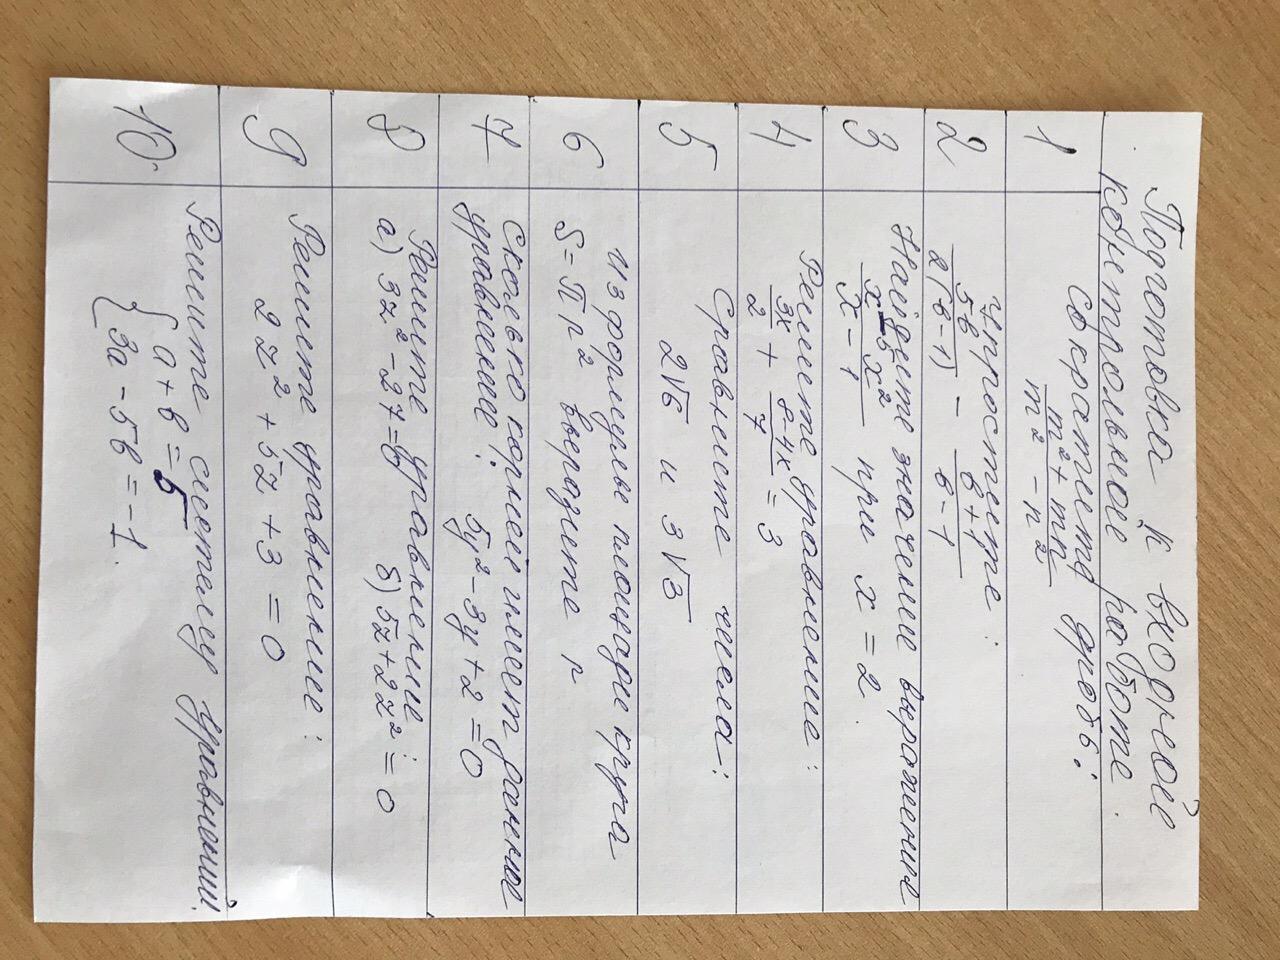 Подготовка к входной
контрольное работе.
1 Сократите дробь:
m² + mn
m² - n²
2 Упростите:
5в / 2(в-1) - в+1 / в-1
3 Найдите значение выражения
x - 5x² / x - 1 при x = 2.
4 Решите уравнение:
3x/2 + 8-4x/7 = 3
5 Сравните числа:
2√6 и 3√3
6 Из формулы площади круга
S = Пr² выразите r
7 Сколько корней имеет данное
уравнение: 5y² - 3y + 2 = 0
8 Решите уравнение:
а) 3z² - 27 = 0 б) 5z + 2z² = 0
9 Решите уравнение:
2z² + 5z + 3 = 0
10. Решите систему уравнений.
{ а + в = 5
3а - 5в = -1.